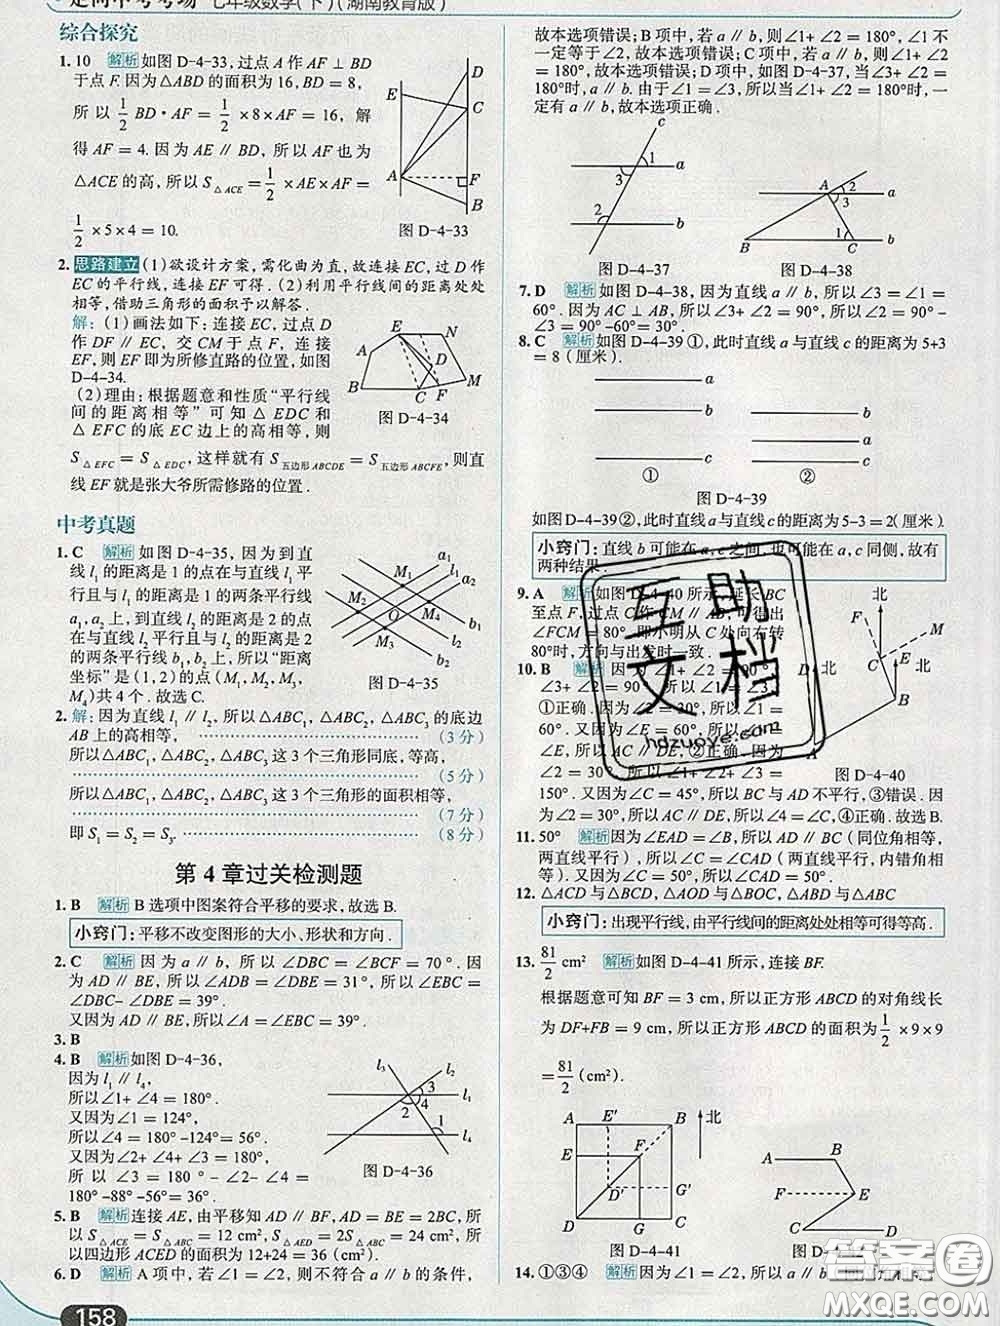 走向中考考场 七年级数学(下)(湖南教育版)
综合探究
1. 10 解析 如图 D-4-33, 过点 A 作 AF ⊥ BD
于点 F. 因为△ABD 的面积为 16, BD = 8,
所以 1/2 BD·AF = 1/2 ×8×AF = 16, 解
得 AF = 4. 因为 AE // BD, 所以 AF 也为
△ACE 的高, 所以 S△ACE = 1/2 ×AE×AF =
1/2 ×5×4 = 10.
D
E
C
A
F
B
图 D-4-33
2. 思路建立 (1)欲设计方案, 需化曲为直, 故连接 EC, 过 D 作
EC 的平行线, 连接 EF 可得. (2)利用平行线间的距离处处
相等, 借助三角形的面积予以解答.
解: (1)画法如下: 连接 EC, 过点 D
作 DF // EC, 交 CM 于点 F, 连接
EF, 则 EF 即为所修直路的位置, 如图
D-4-34.
(2)理由: 根据题意和性质“平行线
间的距离相等”可知△EDC 和
△EFC 的底 EC 边上的高相等, 则
E N
A D
B C F M
图 D-4-34
S△EFC = S△EDC, 这样就有 S五边形ABCDE = S五边形ABCFE, 则直
线 EF 就是张大爷所需修路的位置.
中考真题
1. C 解析 如图 D-4-35, 因为到直
线 l₁ 的距离是 1 的点在与直线 l₁ 平
行且与 l₁ 的距离是 1 的两条平行线
a₁, a₂ 上, 到直线 l₂ 的距离是 2 的点
在与直线 l₂ 平行且与 l₂ 的距离是 2
的两条平行线 b₁, b₂ 上, 所以“距离
坐标”是(1, 2)的点是 M₁, M₂, M₃,
M₄ 共 4 个. 故选 C.
a₁
l₁
a₂
M₁
M₂
O
M₄
M₃
b₁
l₂
b₂
图 D-4-35
2. 解: 因为直线 l₁ // l₂, 所以△ABC₁, △ABC₂, △ABC₃ 的底边
AB 上的高相等, (3 分)
所以△ABC₁, △ABC₂, △ABC₃ 这 3 个三角形同底, 等高,
(5 分)
所以△ABC₁, △ABC₂, △ABC₃ 这 3 个三角形的面积相等,
(7 分)
即 S₁ = S₂ = S₃. (8 分)
第 4 章过关检测题
1. B 解析 B 选项中图案符合平移的要求, 故选 B.
小窍门: 平移不改变图形的大小、形状和方向.
2. C 解析 因为 a // b, 所以 ∠DBC = ∠BCF = 70°. 因
为 AD // BE, 所以 ∠ADB = ∠DBE = 31°, 所以 ∠EBC =
∠DBC- ∠DBE = 39°.
又因为 AD // BE, 所以 ∠A = ∠EBC = 39°.
3. B
4. B 解析 如图 D-4-36,
因为 l₁ // l₄,
所以∠1+ ∠4 = 180°.
又因为∠1 = 124°,
所以∠4 = 180°-124°= 56°.
又因为∠2+ ∠4+ ∠3 = 180°,
∠2 = 88°, 所以 ∠3 =
180°-88°-56°= 36°.
l₃
l₂
3
l₁
2 4
1
l₄
图 D-4-36
5. B 解析 连接 AE, 由平移知 AD // BF, AD = BE = 2BC, 所
以 S△ACE = S△ABC = 12 cm², S△AED = 2S△ABC = 24 cm², 所
以四边形 ACED 的面积为 12+24 = 36 (cm²).
6. D 解析 A 项中, 若∠1 = ∠2, 则不符合 a // b 的条件,
158
故本选项错误; B 项中, 若 a // b, 则∠1+ ∠2 = 180°, ∠1 不
一定等于∠2, 故本选项错误; C 项中, 若 a // b, 则∠1+ ∠2
= 180°, 故本选项错误; D 项中, 如图 D-4-37, 当∠3+ ∠2 =
180°时, a // b. 由于∠1 = ∠3, 所以当∠1+ ∠2 = 180°时, 一
定有 a // b, 故本选项正确.
c
1
a
3
2
b
图 D-4-37
A 2
a
3
1
B C
b
图 D-4-38
7. D 解析 如图 D-4-38, 因为直线 a // b, 所以∠1 = ∠2 =
60°. 因为 AC ⊥ AB, 所以 ∠3+ ∠2 = 90°, 所以 ∠2 = 90°-
∠3 = 90°-60°= 30°.
8. C 解析 如图 D-4-39 ①, 此时直线 a 与直线 c 的距离为 5+3
= 8 (厘米).
a
b
c
①
②
图 D-4-39
如图 D-4-39②, 此时直线 a 与直线 c 的距离为 5-3 = 2(厘米).
小窍门: 直线 b 可能在 a, c 之间, 也可能在 a, c 同侧, 故有
两种结果.
9. A 解析 如图 D-4-40 所示, 延长 BC
至点 F, 过点 C 作 CM // AB, 可得出
∠FCM = 80°, 即小明从 C 处向右转
80°时, 方向与出发时一致.
北
F
M
C
北
北
B
图 D-4-40
10. B 解析 因为∠1+ ∠2 = 90°,
∠3+ ∠2 = 90°, 所以∠1 = ∠3,
①正确. 因为∠2 = 30°, 所以∠1 =
60°. 又因为∠E = 60°, 所以∠1 =
∠E, 所以 AC // DE, ②正确. 因为
∠2 = 30°, 所以
150°. 又因为∠C = 45°, 所以 BC 与 AD 不平行, ③错误. 因
为∠2 = 30°, 所以 AC // DE, 所以 ∠4 = ∠C, ④正确. 故选 B.
11. 50° 解析 因为∠EAD = ∠B, 所以 AD // BC (同位角相等,
两直线平行), 所以∠C = ∠CAD (两直线平行, 内错角相
等). 因为∠CAD = 50°, 所以∠C = 50°.
12. △ACD 与△BCD, △AOD 与△BOC, △ABD 与△ABC
小窍门: 出现平行线, 由平行线间的距离处处相等可得等高.
13. 81/2 cm² 解析 如图 D-4-41 所示, 连接 BF.
根据题意可知 BF = 3 cm, 所以正方形 ABCD 的对角线长
为 DF+FB = 9 cm, 所以正方形 ABCD 的面积为 1/2 ×9×9
= 81/2 (cm²).
A E′ B 北
E F
D′ G′
D G C
图 D-4-41
A B
F E
C
14. ①③④ 解析 因为∠1 = ∠2, 所以
互助文档
hdzuoye.com
答案圈
MXQE.COM